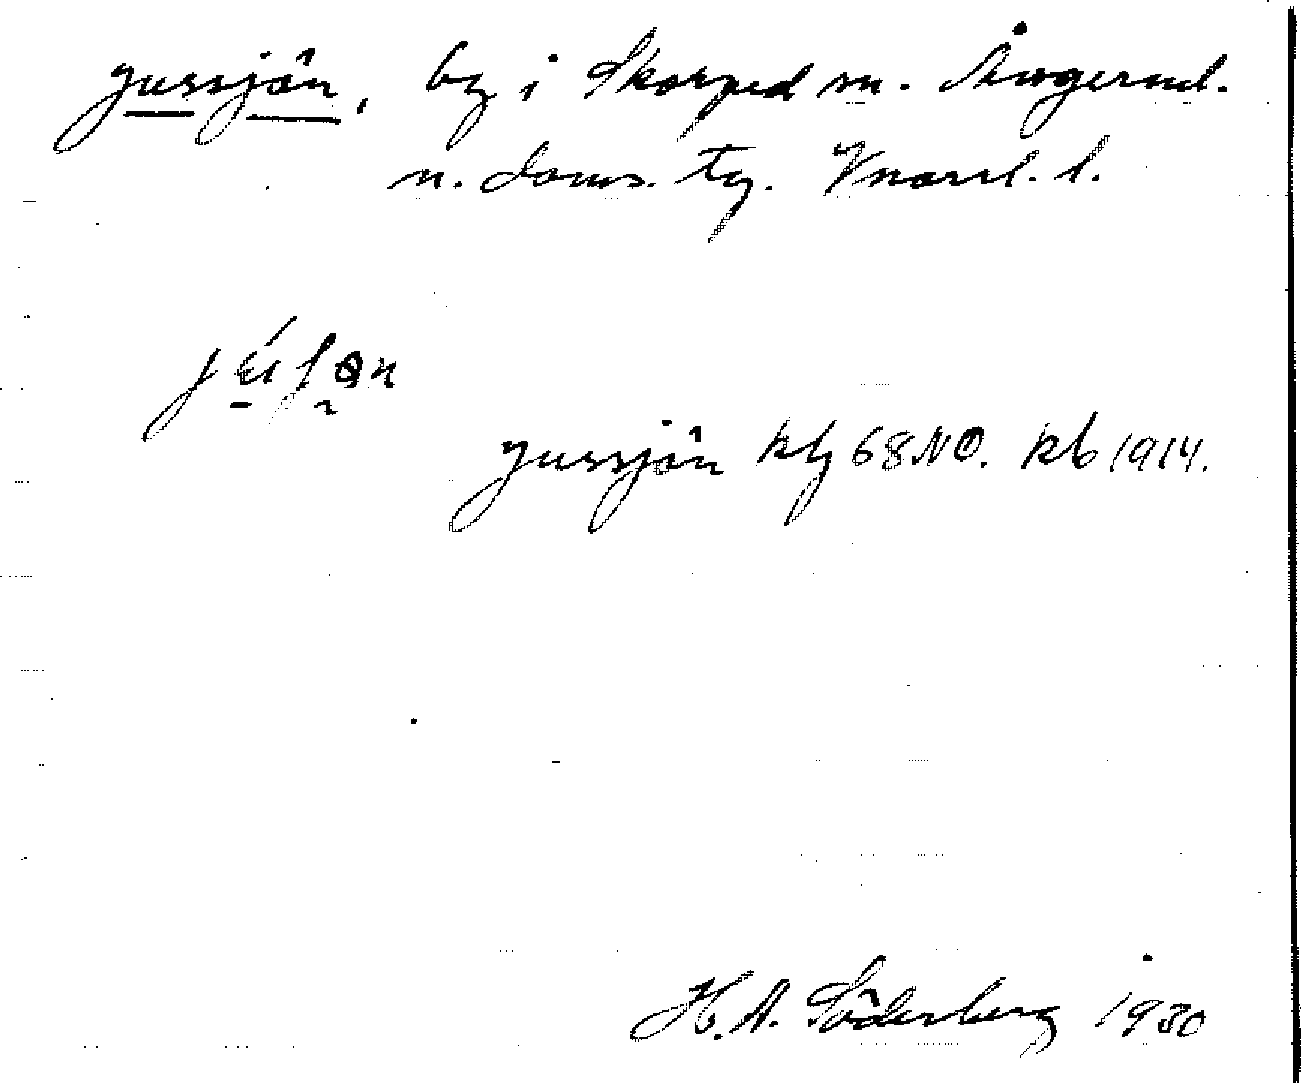 Jussjön, by i Skorped sn. Ångerml.
n. doms. tg. Vnorrl. l.
Jussjön ktg 68 NO. kb 1914.
H. A. Söderberg 1930